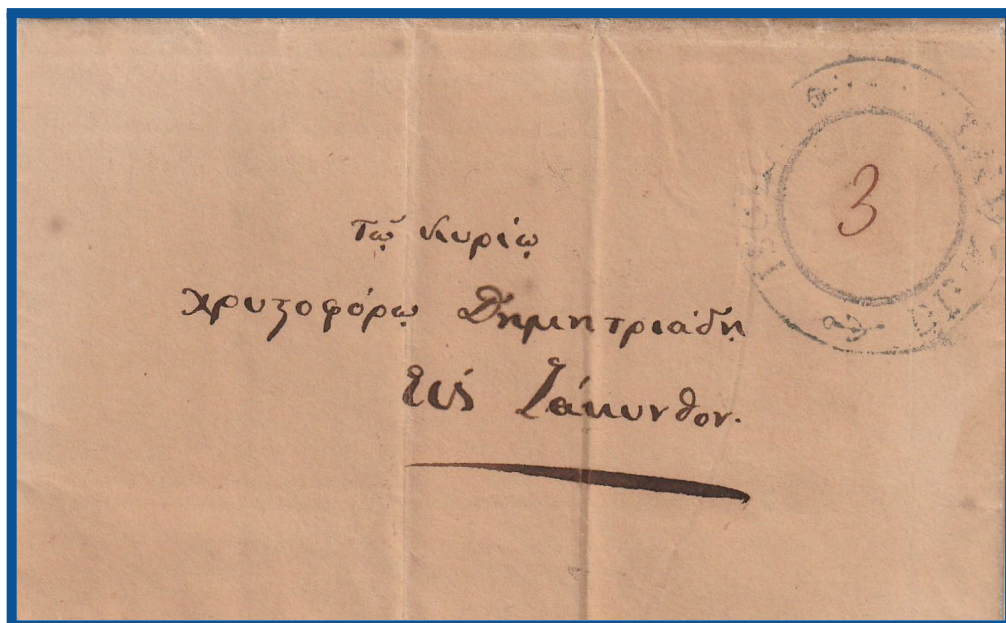 Τῷ Κυρίῳ
Χρυσοφόρῳ Δημητριάδῃ
Εἰς Ζάκυνθον.
3